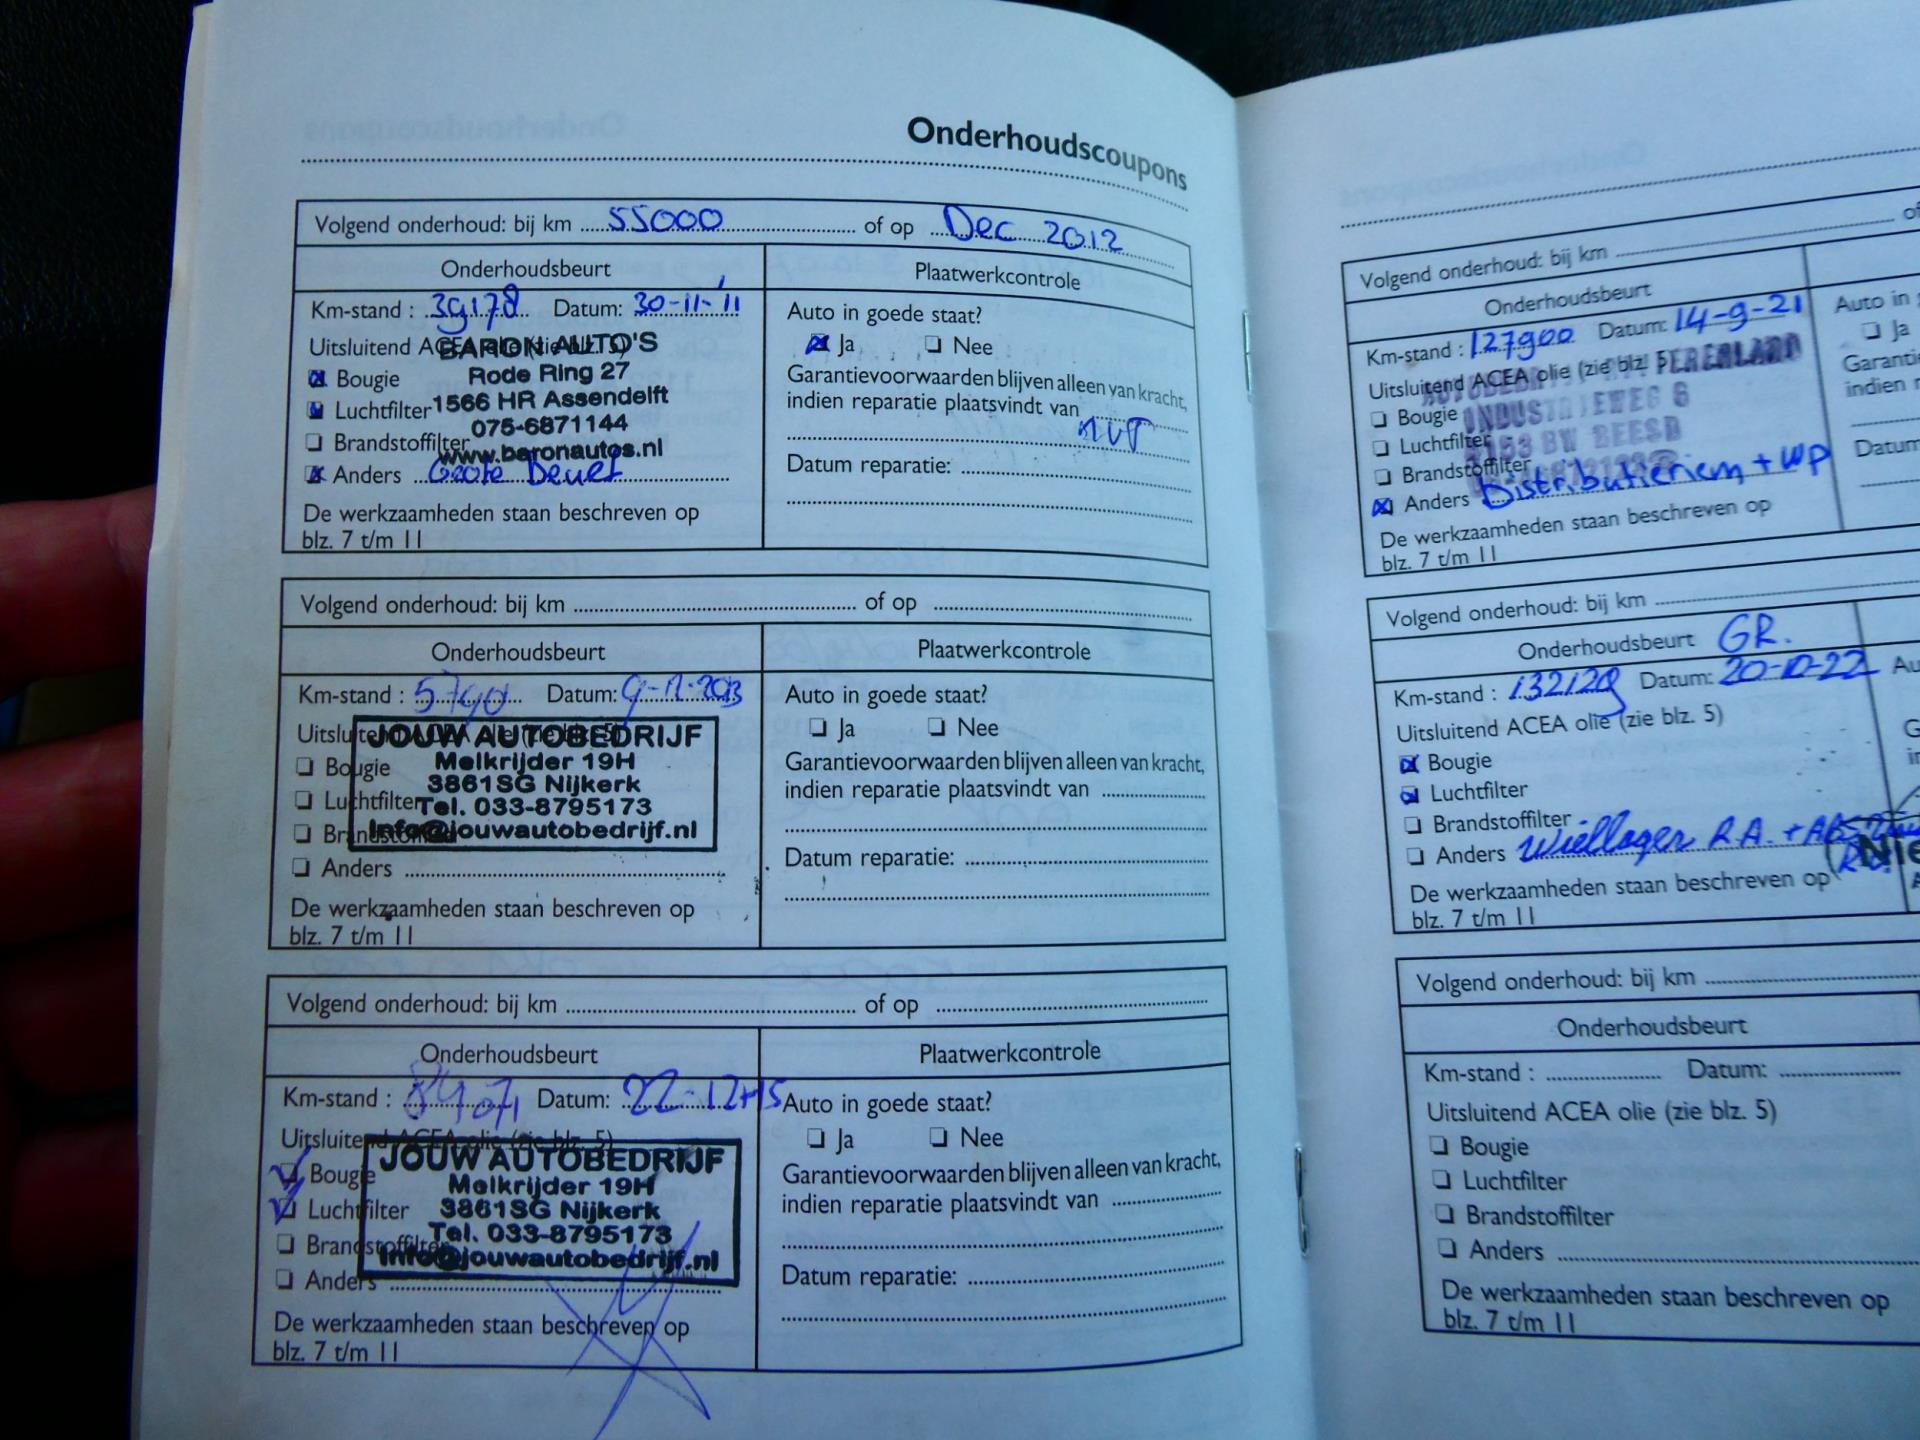 Onderhoudscoupons
Volgend onderhoud: bij km 55000 of op Dec 2012
Onderhoudsbeurt
Plaatwerkcontrole
Km-stand : 39178 Datum: 30-11-'11
Uitsluitend ACEA olie (zie blz. 5)
BARON AUTO'S
Rode Ring 27
1566 HR Assendelft
075-6871144
www.baronautos.nl
Bougie
Luchtfilter
Brandstoffilter
Anders Grote Beurt
De werkzaamheden staan beschreven op
blz. 7 t/m 11
Auto in goede staat?
Ja Nee
Garantievoorwaarden blijven alleen van kracht,
indien reparatie plaatsvindt van
Datum reparatie:
Volgend onderhoud: bij km of op
Onderhoudsbeurt
Plaatwerkcontrole
Km-stand : Datum:
Uitsluitend
JOUW AUTOBEDRIJF
Melkrijder 19H
3861SG Nijkerk
Tel. 033-8795173
Info@jouwautobedrijf.nl
Bougie
Luchtfilter
Brandstoffilter
Anders
De werkzaamheden staan beschreven op
blz. 7 t/m 11
Auto in goede staat?
Ja Nee
Garantievoorwaarden blijven alleen van kracht,
indien reparatie plaatsvindt van
Datum reparatie:
Volgend onderhoud: bij km of op
Onderhoudsbeurt
Plaatwerkcontrole
Km-stand : Datum: 22-12-15
Uitsluitend ACEA olie (zie blz. 5)
JOUW AUTOBEDRIJF
Melkrijder 19H
3861SG Nijkerk
Tel. 033-8795173
Info@jouwautobedrijf.nl
Bougie
Luchtfilter
Brandstoffilter
Anders
De werkzaamheden staan beschreven op
blz. 7 t/m 11
Auto in goede staat?
Ja Nee
Garantievoorwaarden blijven alleen van kracht,
indien reparatie plaatsvindt van
Datum reparatie:
Volgend onderhoud: bij km
Onderhoudsbeurt
Km-stand : 127900 Datum: 14-9-21
Uitsluitend ACEA olie (zie blz. 5)
INDUSTRIEWEG 6
4153 BW BEESD
Bougie
Luchtfilter
Brandstoffilter
Anders Distributieriem + WP
De werkzaamheden staan beschreven op
blz. 7 t/m 11
Auto in
Ja
Garanti
indien
Datum
Volgend onderhoud: bij km
Onderhoudsbeurt GR.
Km-stand : 132129 Datum: 20-10-22
Uitsluitend ACEA olie (zie blz. 5)
Bougie
Luchtfilter
Brandstoffilter
Anders Wiellager R.A. +
De werkzaamheden staan beschreven op
blz. 7 t/m 11
Volgend onderhoud: bij km
Onderhoudsbeurt
Km-stand : Datum:
Uitsluitend ACEA olie (zie blz. 5)
Bougie
Luchtfilter
Brandstoffilter
Anders
De werkzaamheden staan beschreven op
blz. 7 t/m 11